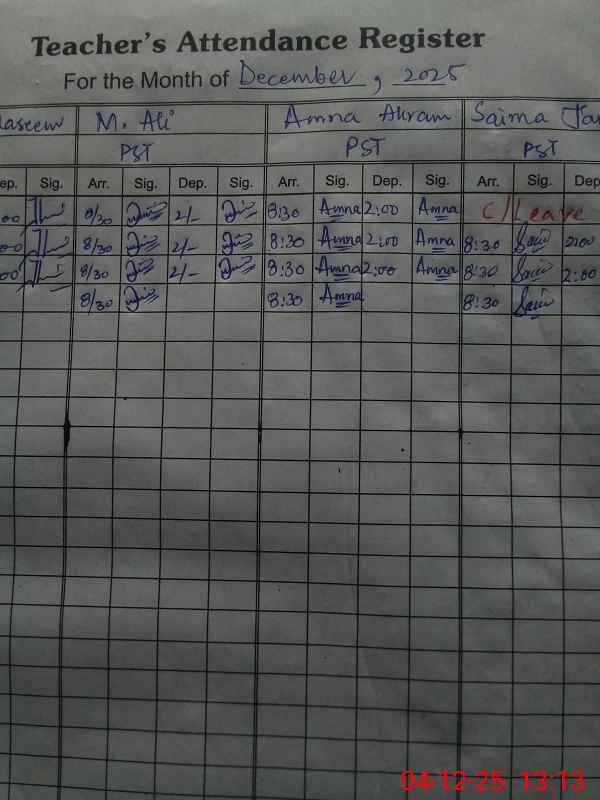 Teacher's Attendance Register
For the Month of December, 2025
aseem M. Ali Amna Akram Saima
PST PST PST
ep. Sig. Arr. Sig. Dep. Sig. Arr. Sig. Dep. Sig. Arr. Sig. Dep
00 8/30 2/- 8:30 Amna 2:00 Amna C/Leave
00 8/30 2/- 8:30 Amna 2:00 Amna 8:30 2:00
00 8/30 2/- 8:30 Amna 2:00 Amna 8:30 2:00
8/30 8:30 Amna 8:30
04-12-25 13:13